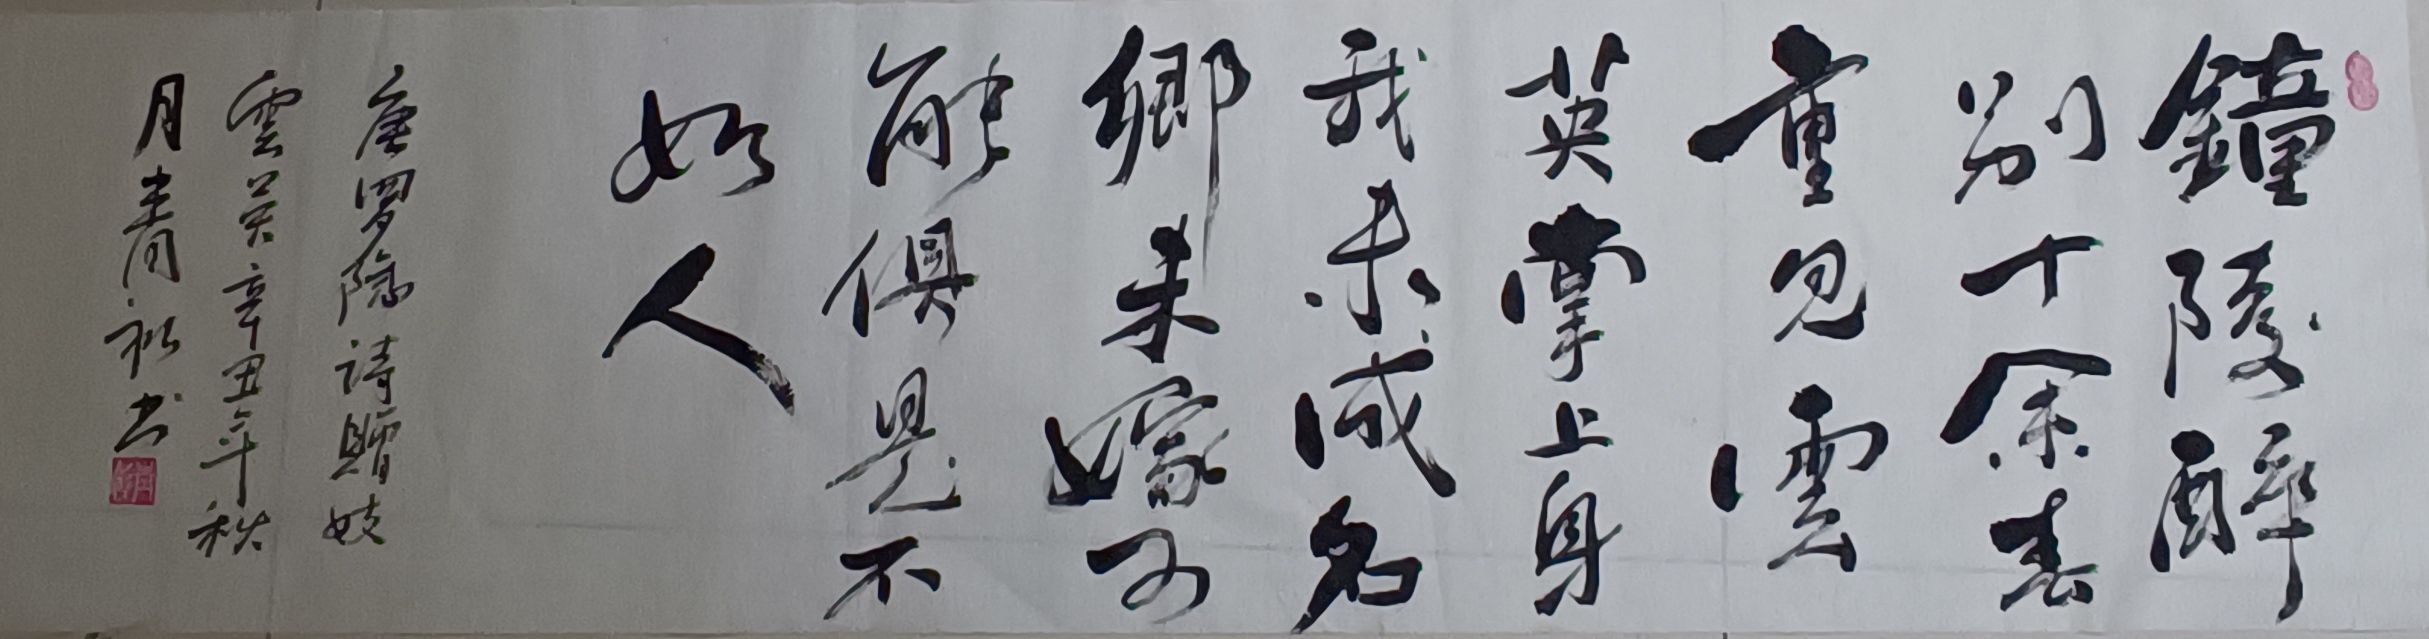 鐘陵醉
別十余春
重見雲
英掌上身
我未成名
卿未嫁可
能俱是不
如人
唐罗隐詩贈妓
雲英辛丑年秋
月書